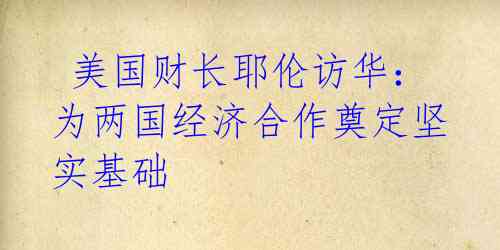 美国财长耶伦访华：
为两国经济合作奠定坚
实基础